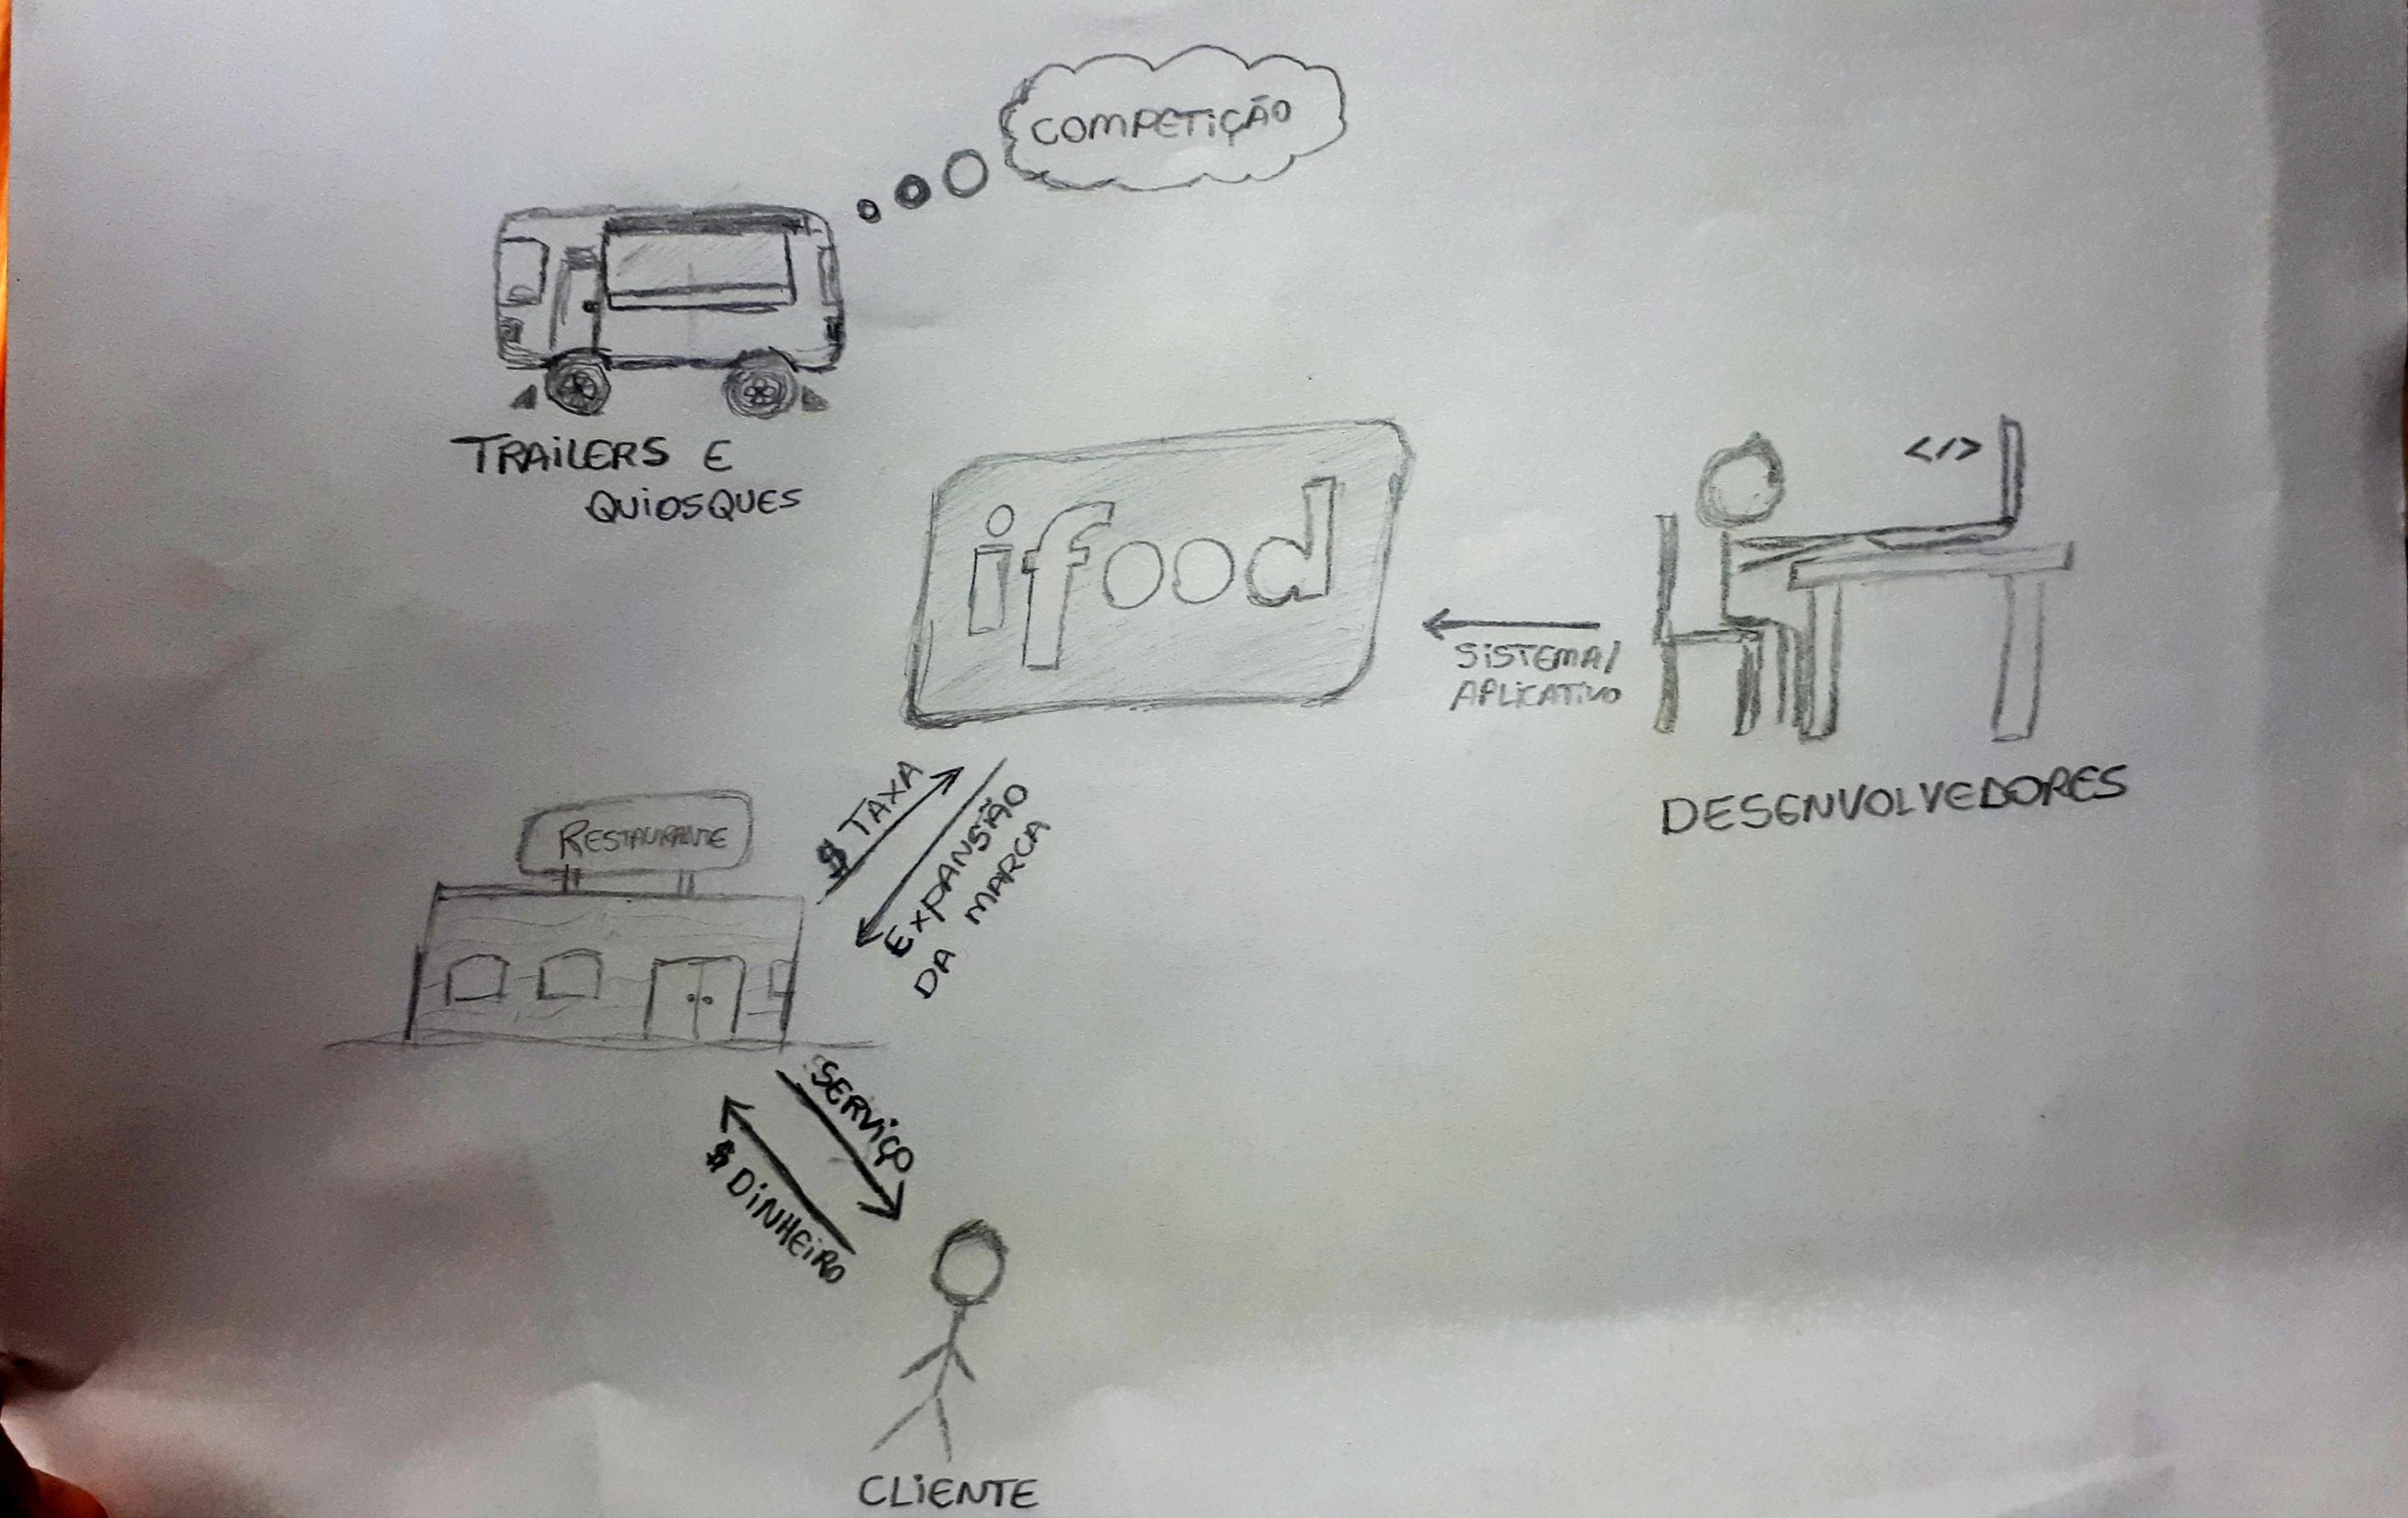 COMPETIÇÃO
TRAILERS E
QUIOSQUES
ifood
</>
SISTEMA/
APLICATIVO
DESENVOLVEDORES
$ TAXA
EXPANSÃO
DA MARCA
RESTAURANTE
SERVIÇO
$ DINHEIRO
CLIENTE